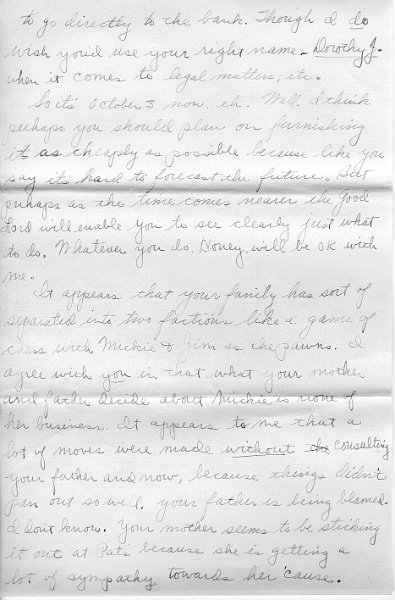 to go directly to the bank. Though I do
wish you'd use your right name - Dorothy J.
when it comes to legal matters, etc.
So it's October 3 now, eh. Well. I think
perhaps you should plan on furnishing
it as cheaply as possible because like you
say its hard to forecast the future. But
perhaps as the time comes nearer the Good
Lord will enable you to see clearly just what
to do. Whatever you do, Honey, will be OK with
me.
It appears that your family has sort of
separated into two factions like a game of
chess with Mickie & Jim as the pawns. I
agree with you in that what your mother
and father decide about Mickie is none of
her business. It appears to me that a
lot of moves were made without the consulting
your father and now, because things didn't
pan out so well, your father is being blamed.
I don't know. Your mother seems to be sticking
it out at Pats because she is getting a
lot of sympathy towards her 'cause.